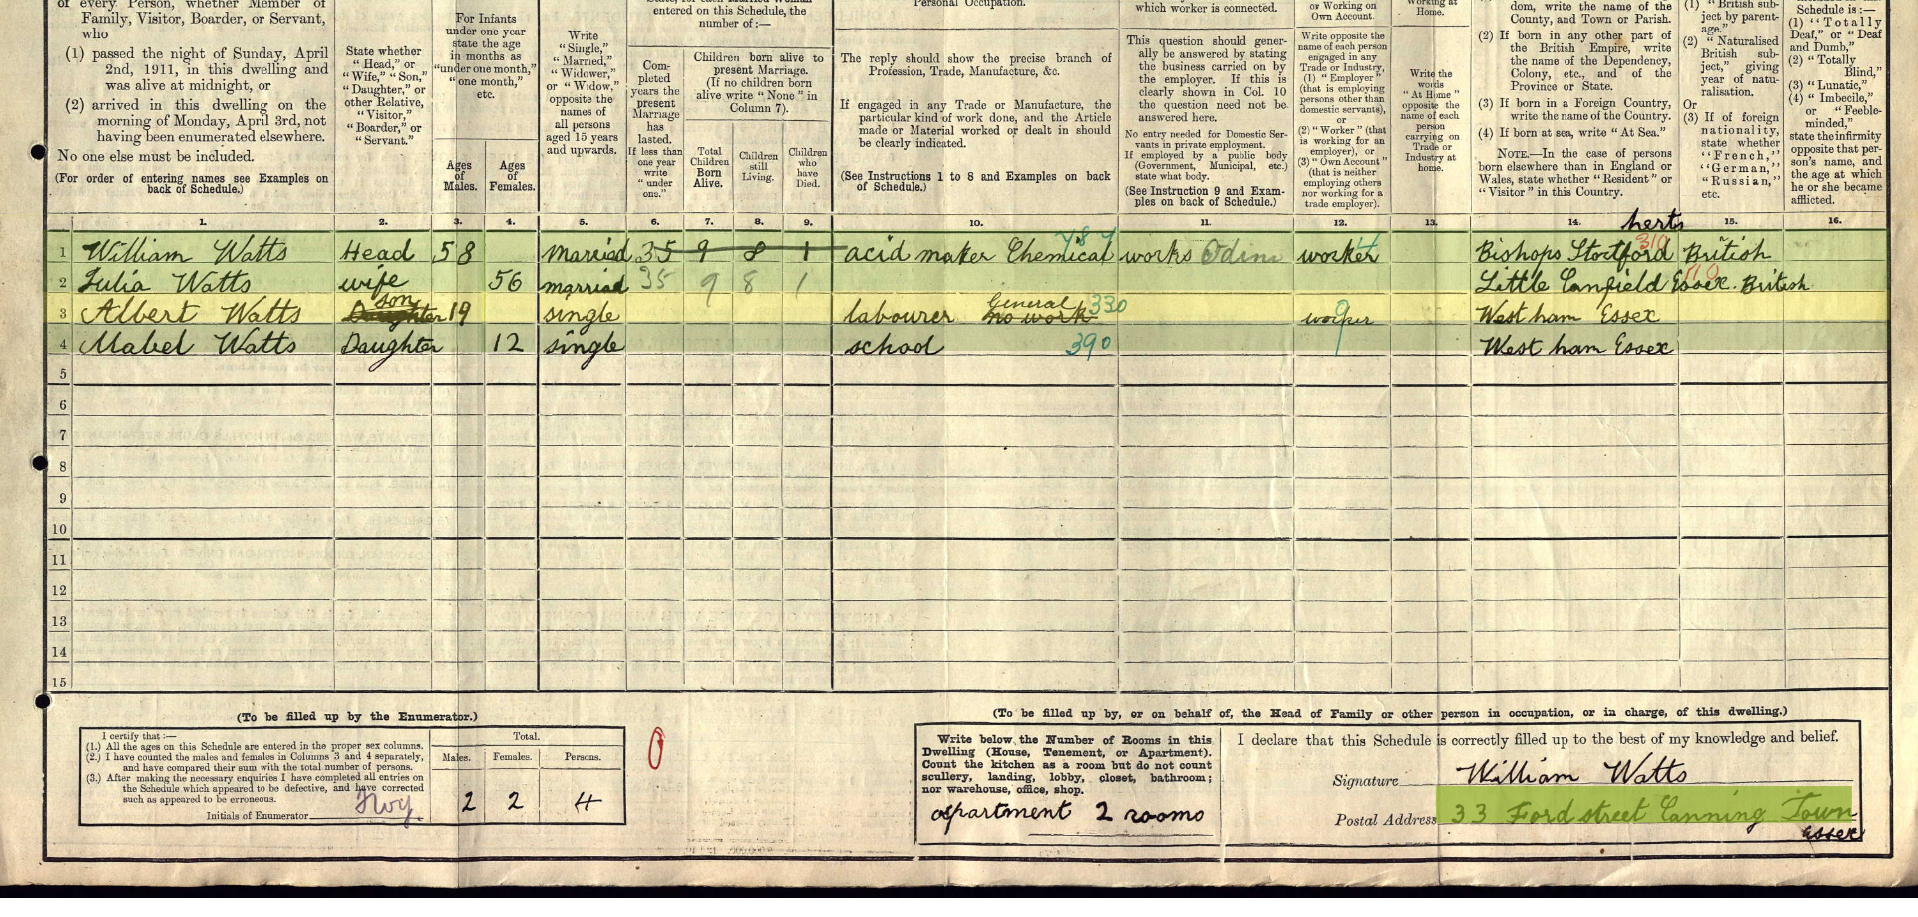 of every Person, whether Member of
Family, Visitor, Boarder, or Servant,
who
(1) passed the night of Sunday, April
2nd, 1911, in this dwelling and
was alive at midnight, or
(2) arrived in this dwelling on the
morning of Monday, April 3rd, not
having been enumerated elsewhere.
No one else must be included.
(For order of entering names see Examples on
back of Schedule.)
State whether
"Head," or
"Wife," "Son,"
"Daughter," or
other Relative,
"Visitor,"
"Boarder," or
"Servant."
For Infants
under one year
state the age
in months as
"under one month,"
"one month,"
etc.
Ages
of
Males.
Ages
of
Females.
Write
"Single,"
"Married,"
"Widower,"
or "Widow,"
opposite the
names of
all persons
aged 15 years
and upwards.
entered on this Schedule, the
number of:—
Com-
pleted
years the
present
Marriage
has
lasted.
If less than
one year
write
"under
one."
Children born alive to
present Marriage.
(If no children born
alive write "None" in
Column 7).
Total
Children
Born
Alive.
Children
still
Living.
Children
who
have
Died.
Personal Occupation.
The reply should show the precise branch of
Profession, Trade, Manufacture, &c.
If engaged in any Trade or Manufacture, the
particular kind of work done, and the Article
made or Material worked or dealt in should
be clearly indicated.
(See Instructions 1 to 8 and Examples on back
of Schedule.)
which worker is connected.
This question should gener-
ally be answered by stating
the business carried on by
the employer. If this is
clearly shown in Col. 10
the question need not be
answered here.
No entry needed for Domestic Ser-
vants in private employment.
If employed by a public body
(Government, Municipal, etc.)
state what body.
(See Instruction 9 and Exam-
ples on back of Schedule.)
or Working on
Own Account.
Write opposite the
name of each person
engaged in any
Trade or Industry,
(1) "Employer"
(that is employing
persons other than
domestic servants),
or
(2) "Worker" (that
is working for an
employer), or
(3) "Own Account"
(that is neither
employing others
nor working for a
trade employer).
Working at
Home.
Write the
words
"At Home"
opposite the
name of each
person
carrying on
Trade or
Industry at
home.
dom, write the name of the
County, and Town or Parish.
(2) If born in any other part of
the British Empire, write
the name of the Dependency,
Colony, etc., and of the
Province or State.
(3) If born in a Foreign Country,
write the name of the Country.
(4) If born at sea, write "At Sea."
NOTE.—In the case of persons
born elsewhere than in England or
Wales, state whether "Resident" or
"Visitor" in this Country.
(1) "British sub-
ject by parent-
age."
(2) "Naturalised
British sub-
ject," giving
year of natu-
ralisation.
Or
(3) If of foreign
nationality,
state whether
"French,"
"German,"
"Russian,"
etc.
Schedule is:—
(1) "Totally
Deaf," or "Deaf
and Dumb,"
(2) "Totally
Blind,"
(3) "Lunatic,"
(4) "Imbecile,"
or "Feeble-
minded,"
state the infirmity
opposite that per-
son's name, and
the age at which
he or she became
afflicted.
1. 2. 3. 4. 5. 6. 7. 8. 9. 10. 11. 12. 13. 14. 15. 16.
herts
1 William Watts Head 58 married 35 9 8 1 acid maker Chemical works worker Bishops Stortford British
2 Julia Watts wife 56 married 35 9 8 1 Little Canfield Essex. British
son General
3 Albert Watts Daughter 19 single labourer no work 330 worker West ham Essex
4 Mabel Watts Daughter 12 single school 390 West ham Essex
5
6
7
8
9
10
11
12
13
14
15
(To be filled up by the Enumerator.)
I certify that:—
(1.) All the ages on this Schedule are entered in the proper sex columns.
(2.) I have counted the males and females in Columns 3 and 4 separately,
and have compared their sum with the total number of persons.
(3.) After making the necessary enquiries I have completed all entries on
the Schedule which appeared to be defective, and have corrected
such as appeared to be erroneous.
Initials of Enumerator
Total.
Males. Females. Persons.
2 2 4
(To be filled up by, or on behalf of, the Head of Family or other person in occupation, or in charge, of this dwelling.)
Write below the Number of Rooms in this
Dwelling (House, Tenement, or Apartment).
Count the kitchen as a room but do not count
scullery, landing, lobby, closet, bathroom;
nor warehouse, office, shop.
apartment 2 rooms
I declare that this Schedule is correctly filled up to the best of my knowledge and belief.
Signature William Watts
Postal Address 33 Ford street Canning Town
Essex